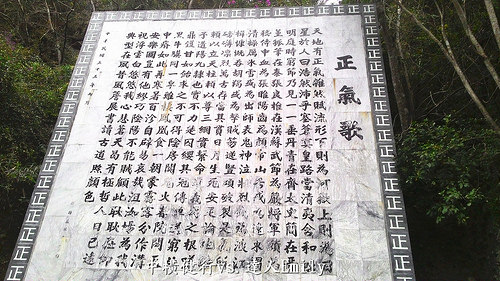 正氣歌
天地有正氣雜然賦流形下則為河嶽上則為日
星於人曰浩然沛乎塞蒼冥皇路當清夷含和吐
明庭時窮節乃見一一垂丹青在齊太史簡在晉
董狐筆在秦張良椎在漢蘇武節為嚴將軍頭為
嵇侍中血為張睢陽齒為顏常山舌或為遼東帽
清操厲冰雪或為出師表鬼神泣壯烈或為渡江
楫慷慨吞胡羯或為擊賊笏逆豎頭破裂是氣所
磅礴凜烈萬古存當其貫日月生死安足論地維
賴以立天柱賴以尊三綱實繫命道義為之根嗟
予遘陽九隸也實不力楚囚纓其冠傳車送窮北
鼎鑊甘如飴求之不可得陰房闃鬼火春院閟天
黑牛驥同一皂雞棲鳳凰食一朝蒙霧露分作溝
中瘠如此再寒暑百沴自辟易哀哉沮洳場為我
安樂國豈有他繆巧陰陽不能賊顧此耿耿在仰
視浮雲白悠悠我心悲蒼天曷有極哲人日已遠
典型在夙昔風簷展書讀古道照顏色
中華民國
中橫健行VS達人Emily